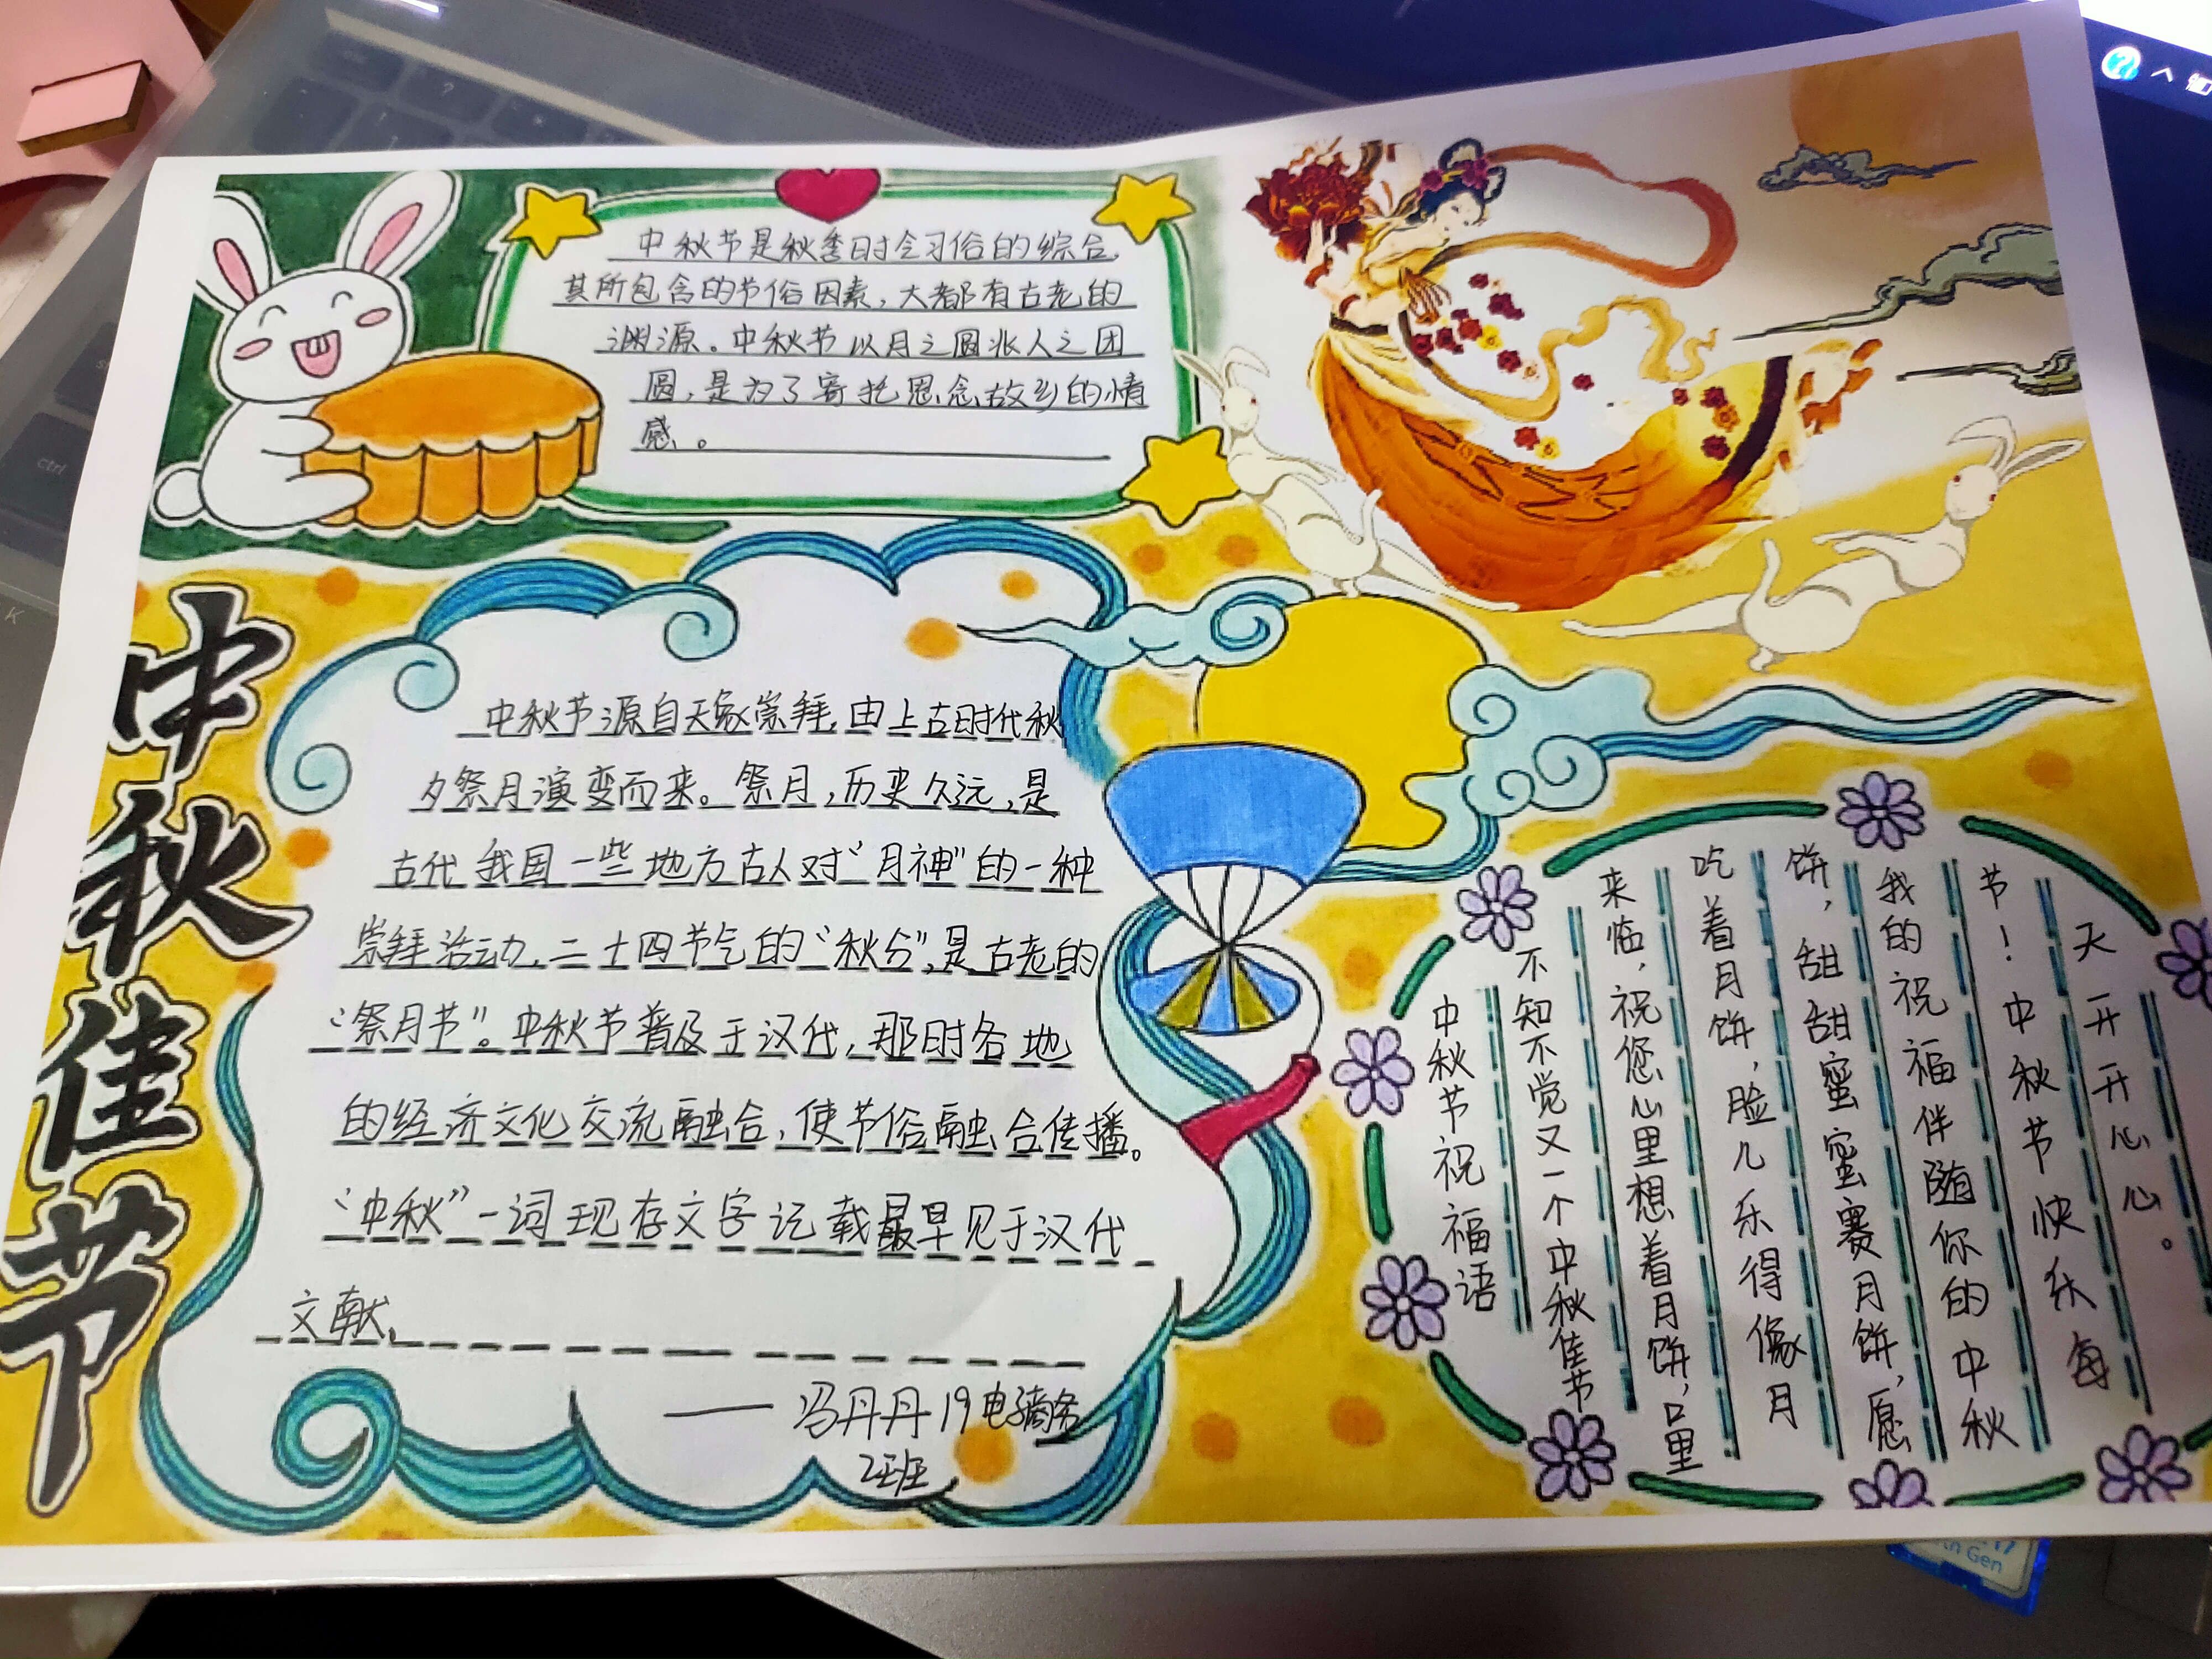 中秋节是秋季时令习俗的综合,
其所包含的节俗因素,大都有古老的
渊源。中秋节以月之圆兆人之团
圆,是为了寄托思念故乡的情
感。
中秋佳节
中秋节源自天象崇拜,由上古时代秋
夕祭月演变而来。祭月,历史久远,是
古代我国一些地方古人对“月神”的一种
崇拜活动,二十四节气的“秋分”,是古老的
“祭月节”。中秋节普及于汉代,那时各地
的经济文化交流融合,使节俗融合传播。
“中秋”一词现存文字记载最早见于汉代
文献,
——冯丹丹19电子商务
2班
中秋节祝福语
不知不觉又一个中秋佳节
来临,祝您心里想着月饼,口里
吃着月饼,脸儿乐得像月
饼,甜甜蜜蜜赛月饼,愿
我的祝福伴随你的中秋
节!中秋节快乐每
天开开心心。
ctrl
K
th Gen